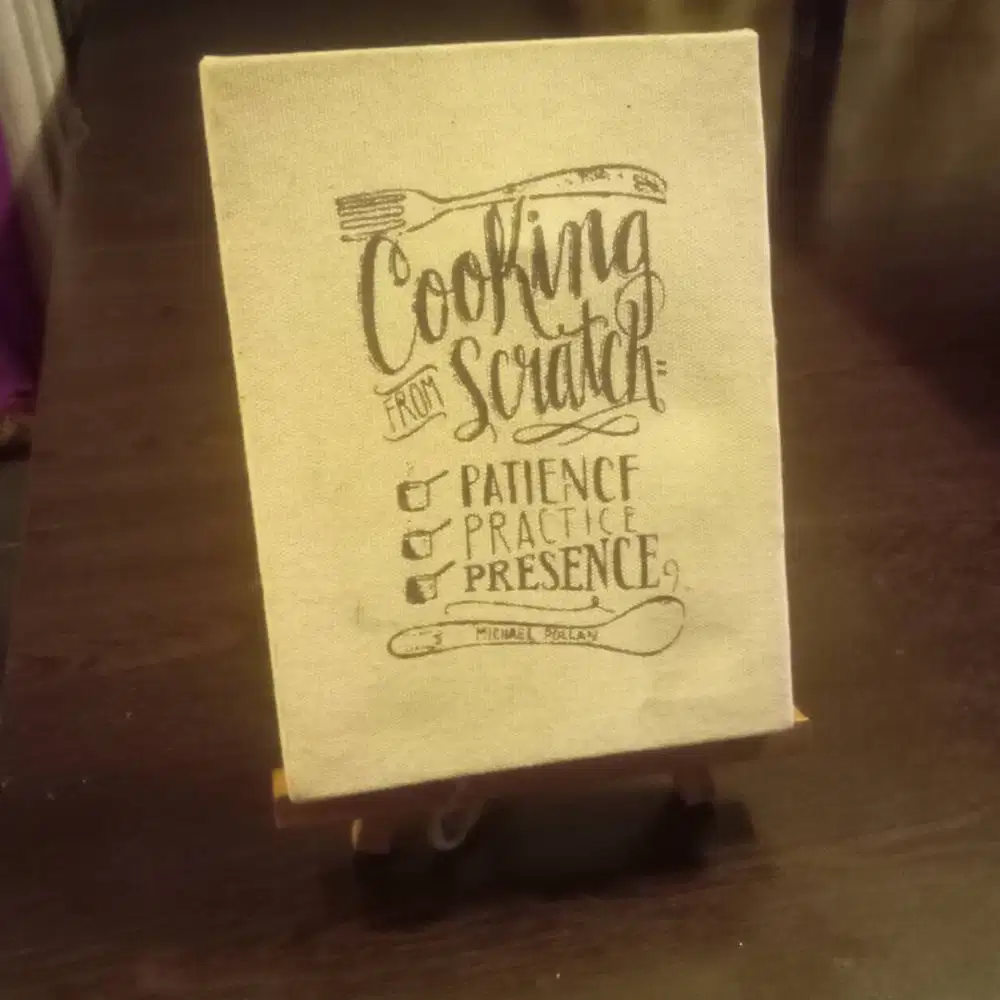 Cooking
FROM Scratch=
PATIENCE
PRACTICE
PRESENCE
MICHAEL POLLAN